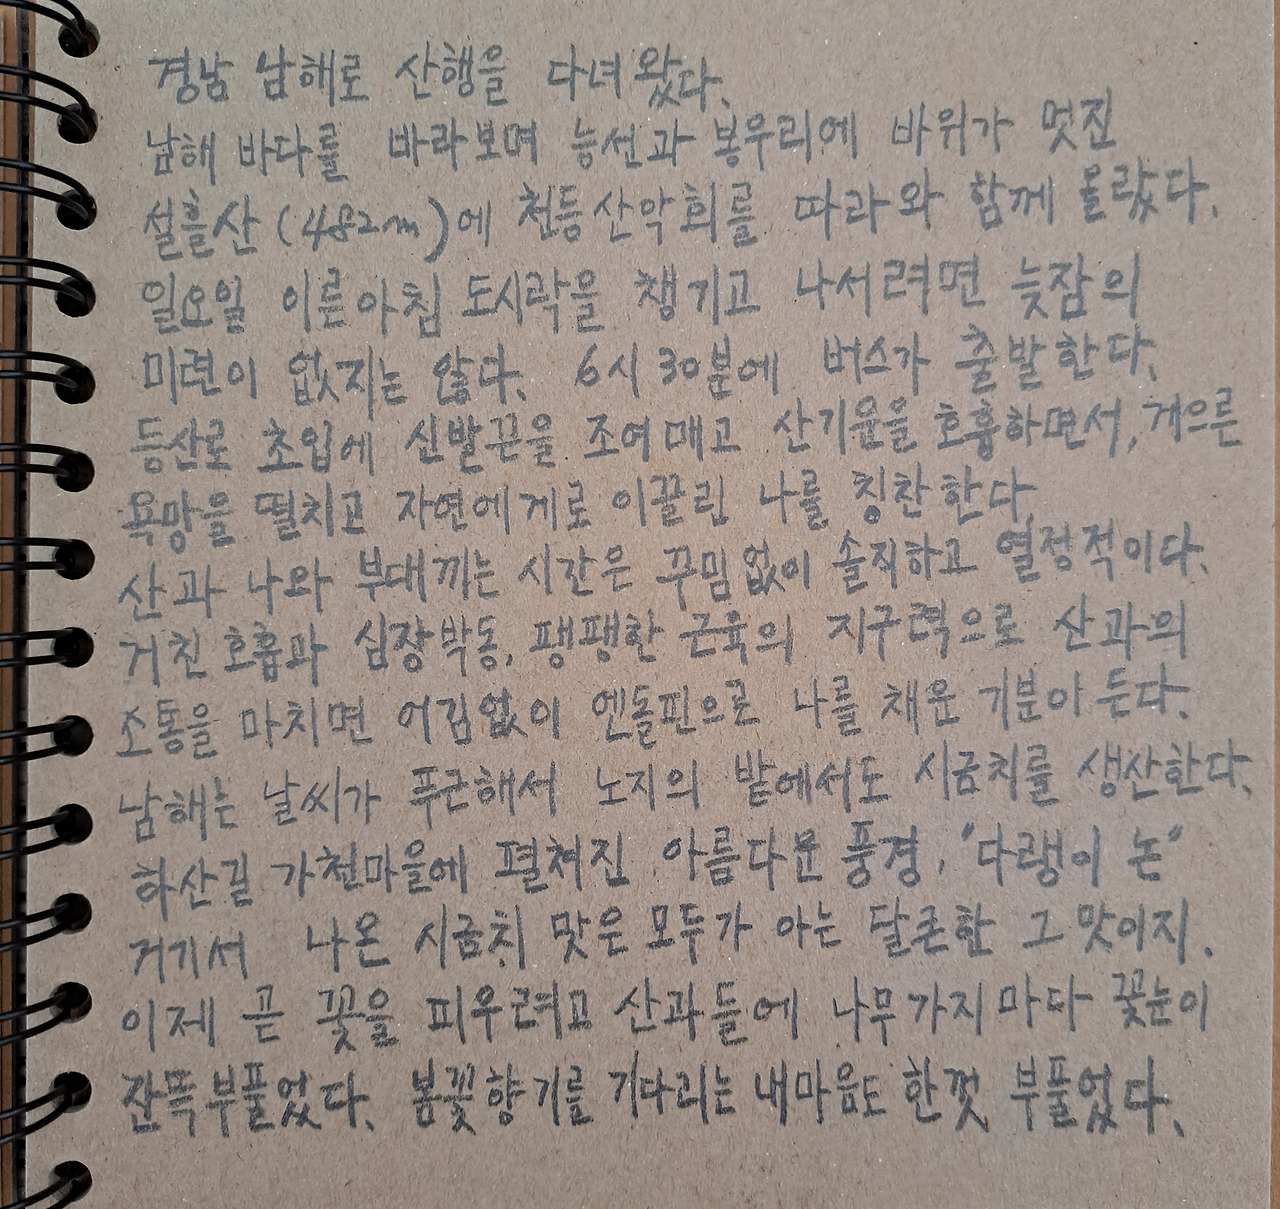 경남 남해로 산행을 다녀왔다.
남해 바다를 바라보며 능선과 봉우리에 바위가 멋진
설흘산 (482m)에 천등산악회를 따라와 함께 올랐다.
일요일 이른아침 도시락을 챙기고 나서려면 늦잠의
미련이 없지는 않다. 6시 30분에 버스가 출발한다.
등산로 초입에 신발끈을 조여매고 산기운을 호흡하면서, 게으른
욕망을 떨치고 자연에게로 이끌린 나를 칭찬한다.
산과 나와 부대끼는 시간은 꾸밈없이 솔직하고 열정적이다.
거친 호흡과 심장박동, 팽팽한 근육의 지구력으로 산과의
소통을 마치면 어김없이 엔돌핀으로 나를 채운 기분이 든다.
남해는 날씨가 푸근해서 노지의 밭에서도 시금치를 생산한다.
하산길 가천마을에 펼쳐진 아름다운 풍경, "다랭이 논"
거기서 나온 시금치 맛은 모두가 아는 달큰한 그 맛이지.
이제 곧 꽃을 피우려고 산과들에 나무가지마다 꽃눈이
잔뜩부풀었다. 봄꽃향기를 기다리는 내마음도 한껏 부풀었다.